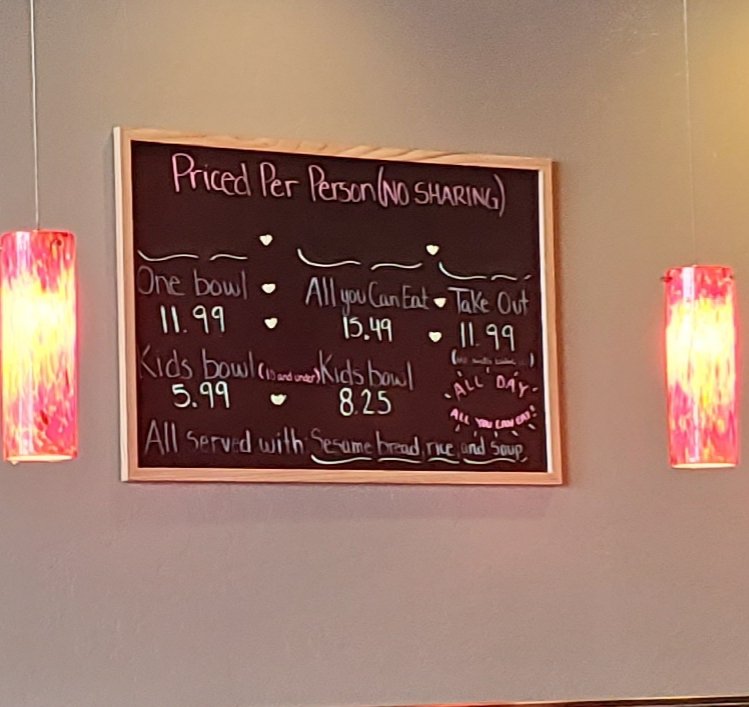 Priced Per Person (NO SHARING)
One bowl
11.99
All you Can Eat
15.49
Take Out
11.99
Kids bowl (10 and under)
5.99
Kids bowl
8.25
ALL DAY
ALL YOU CAN EAT!
All served with Sesame bread, rice, and soup